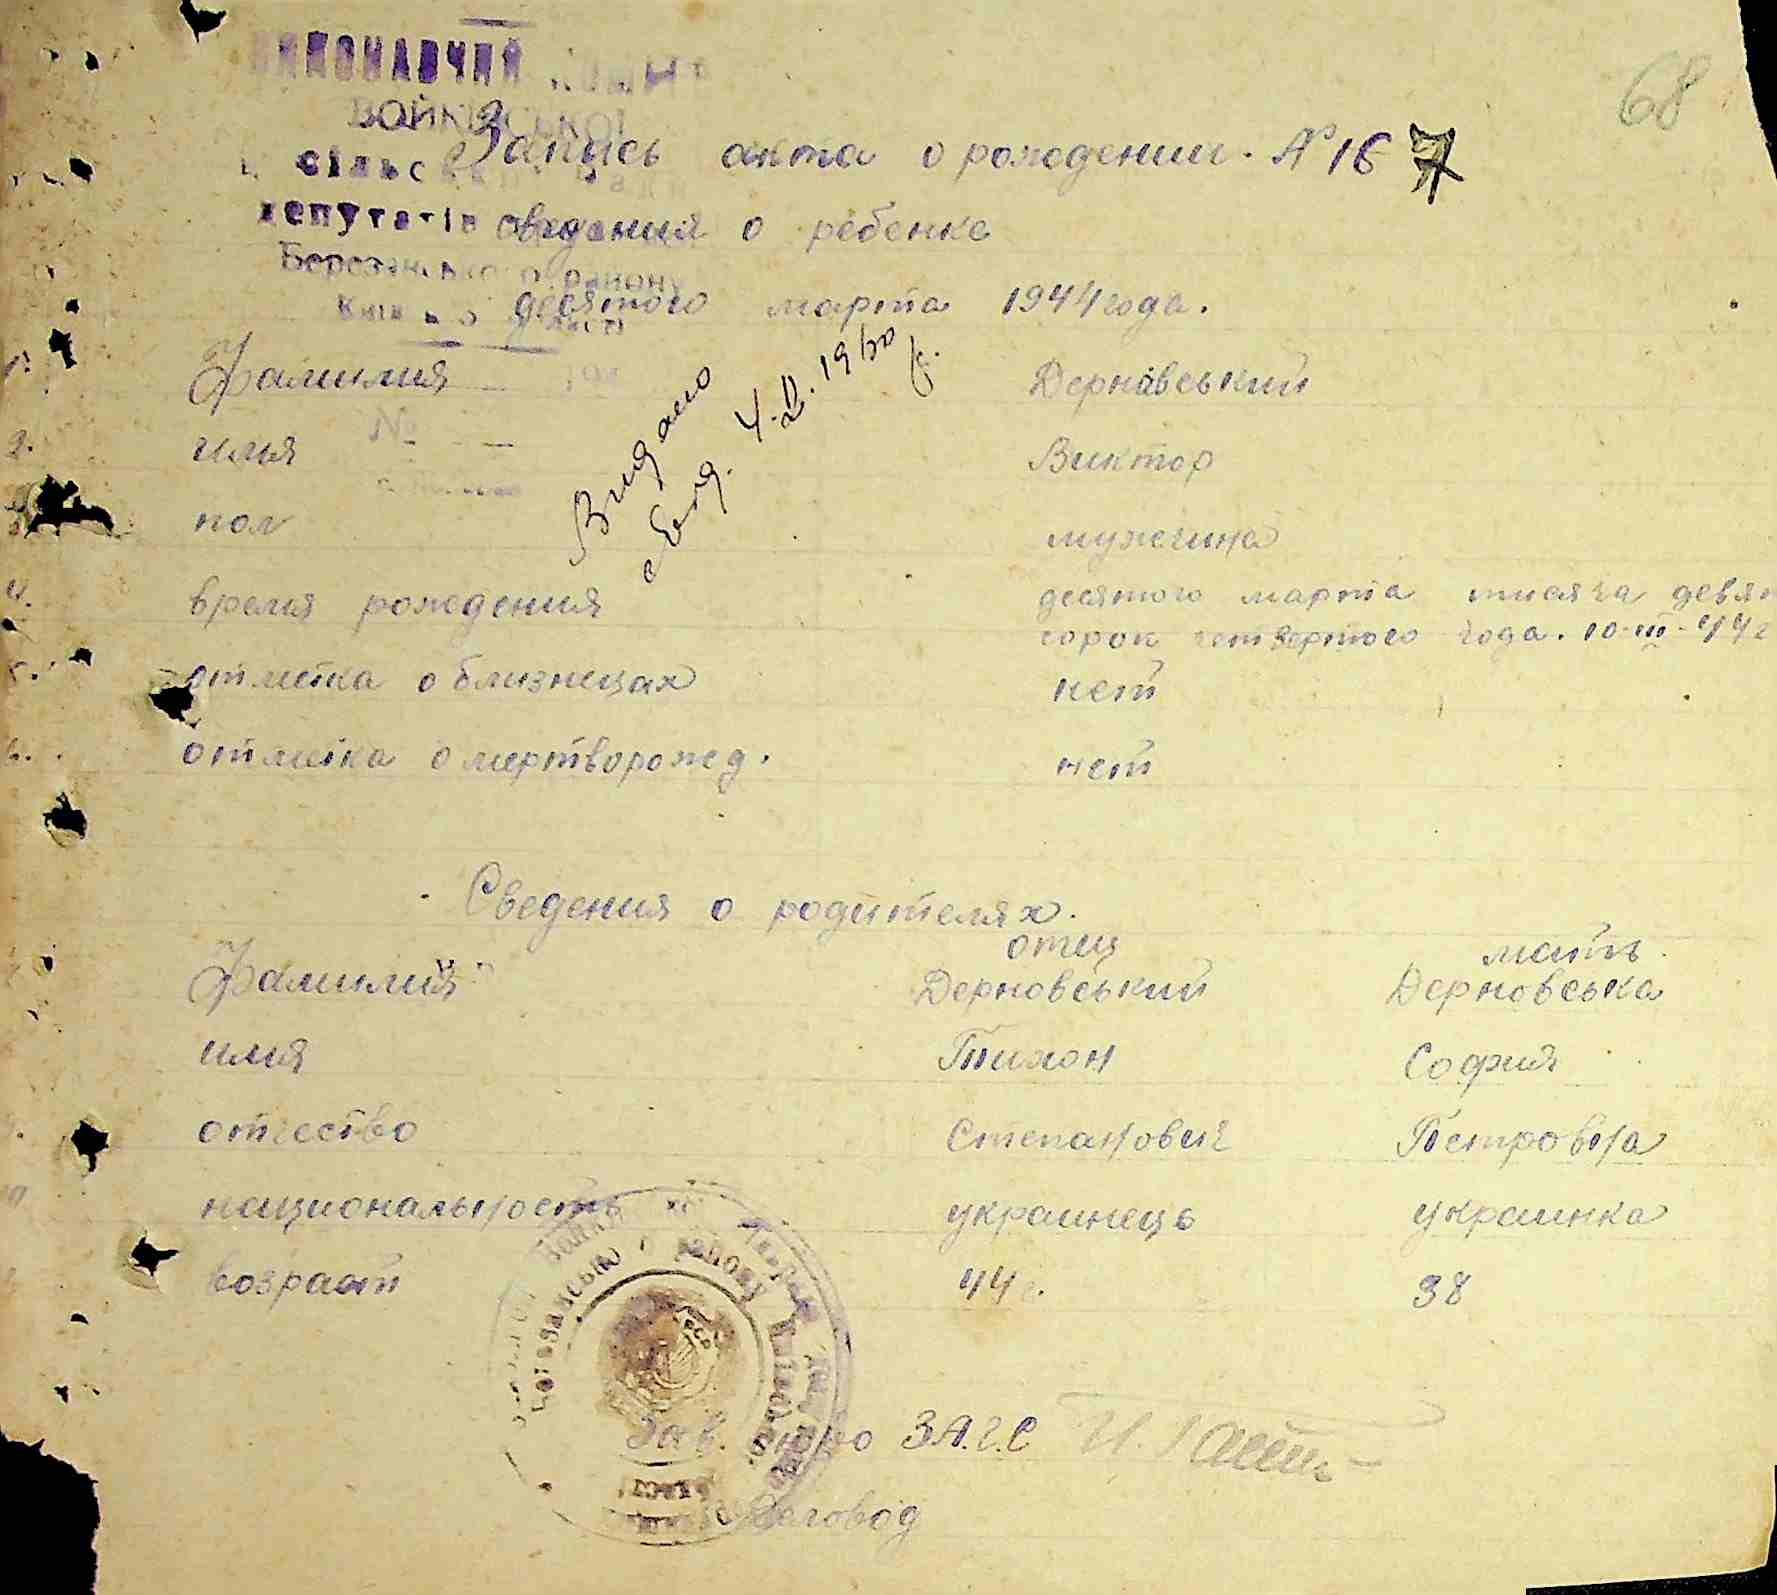 68
ВИКОНАВЧИЙ
ВОЙКІВСЬКОЇ
сільс
депутатів
Березанського району
Запись акта о рождении. № 16 7
сведения о ребенке
десятого марта 1944 года.
Видано
Свид. 4.II.1960
1. Фамилия Дернавський
2. имя Виктор
№
пол мужчина
4. время рождения десятого марта тисяча девят
сорок четвертого года. 10-III-44 г
5. отметка о близнецах нет
6. отметка о мертворожд. нет
Сведения о родителях.
отец мать
Фамилия Дерновський Дерновська
имя Тихон София
отчество Степанович Петровна
национальность украинець украинка
возраст 44 г. 38
Березанського району
Зав. бюро ЗАГС
Деловод